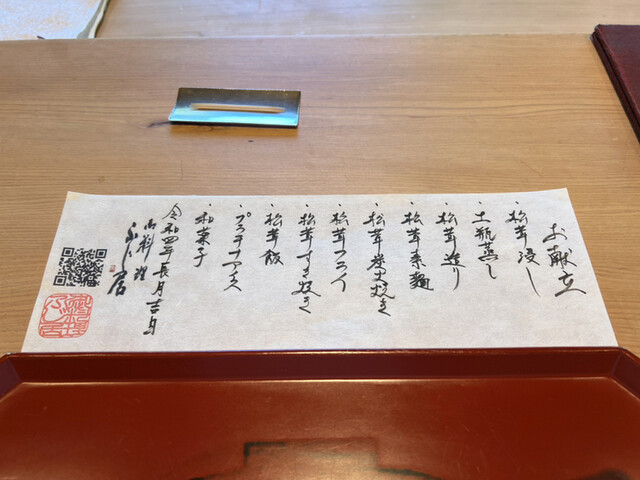 お献立
・松茸浸し
・土瓶蒸し
・松茸造り
・松茸素麺
・松茸炭火焼き
・松茸フライ
・松茸すき焼き
・松茸飯
・プラチナアイス
・和菓子
令和四年長月吉日
御料理
ふじ居